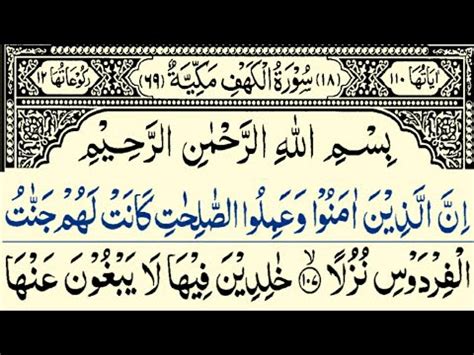 اٰیَاتُهَا ۱۱۰ (۱۸) سُوْرَةُ الْكَهْفِ مَكِّيَّةٌ (۶۹) رُكُوْعَاتُهَا ۱۲
بِسْمِ اللهِ الرَّحْمٰنِ الرَّحِيْمِ
اِنَّ الَّذِيْنَ اٰمَنُوْا وَعَمِلُوا الصّٰلِحٰتِ كَانَتْ لَهُمْ جَنّٰتُ
الْفِرْدَوْسِ نُزُلًا ۙ۱۰۷ خٰلِدِيْنَ فِيْهَا لَا يَبْغُوْنَ عَنْهَا